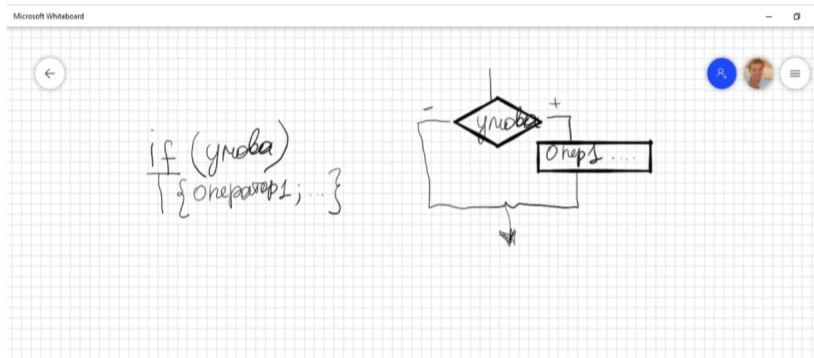 Microsoft Whiteboard
if (умова)
{оператор1; ...}
-
+
умова
Опер1 ....